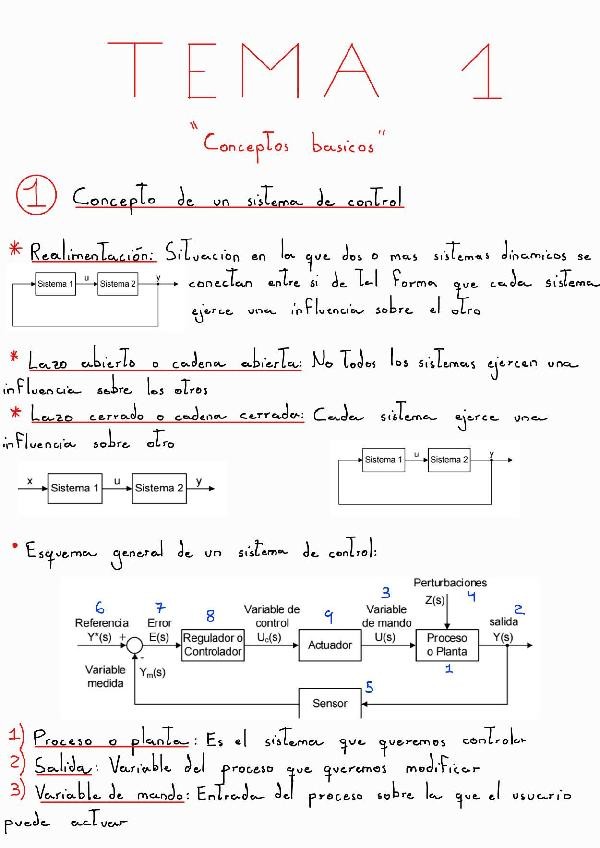 TEMA 1
"Conceptos basicos"
1 Concepto de un sistema de control
* Realimentación: Situacion en la que dos o mas sistemas dinamicos se
conectan entre si de tal forma que cada sistema
ejerce una influencia sobre el otro
Sistema 1 u Sistema 2 y
* Lazo abierto o cadena abierta: No todos los sistemas ejercen una
influencia sobre los otros
* Lazo cerrado o cadena cerrada: Cada sistema ejerce una
influencia sobre otro
x Sistema 1 u Sistema 2 y
Sistema 1 u Sistema 2 y
• Esquema general de un sistema de control:
Perturbaciones
Z(s) 4
6 7 8 9 3 2
Referencia Error Regulador o Variable de Actuador Variable Proceso salida
Y*(s) + E(s) Controlador control de mando o Planta Y(s)
Uc(s) U(s) 1
-
Variable Ym(s)
medida
Sensor 5
1) Proceso o planta: Es el sistema que queremos controlar
2) Salida: Variable del proceso que queremos modificar
3) Variable de mando: Entrada del proceso sobre la que el usuario
puede actuar